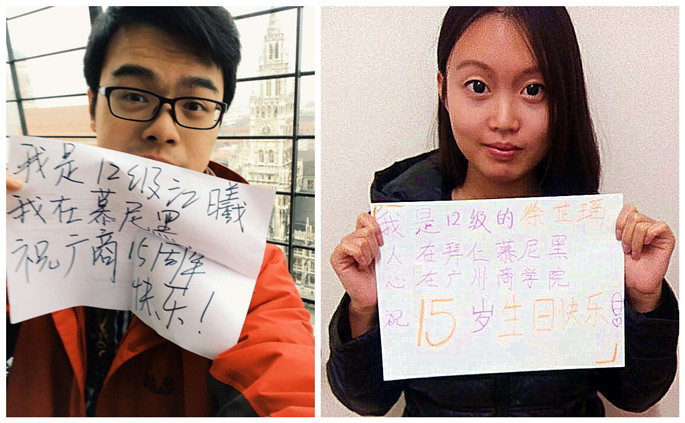 我是12级江曦
我在慕尼黑
祝广商15周年
快乐！
我是12级的徐芷珥
人在拜仁慕尼黑
心在广州商学院
祝15岁生日快乐